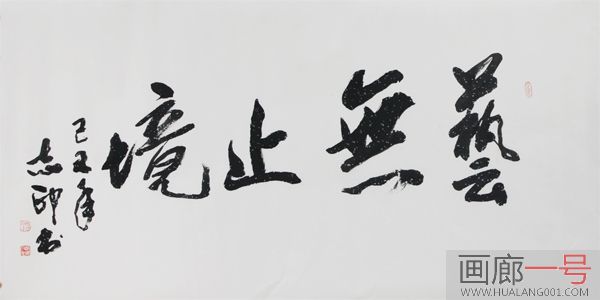 藝無止境
己丑年
志印书
画廊一号
WWW.HUALANG001.COM